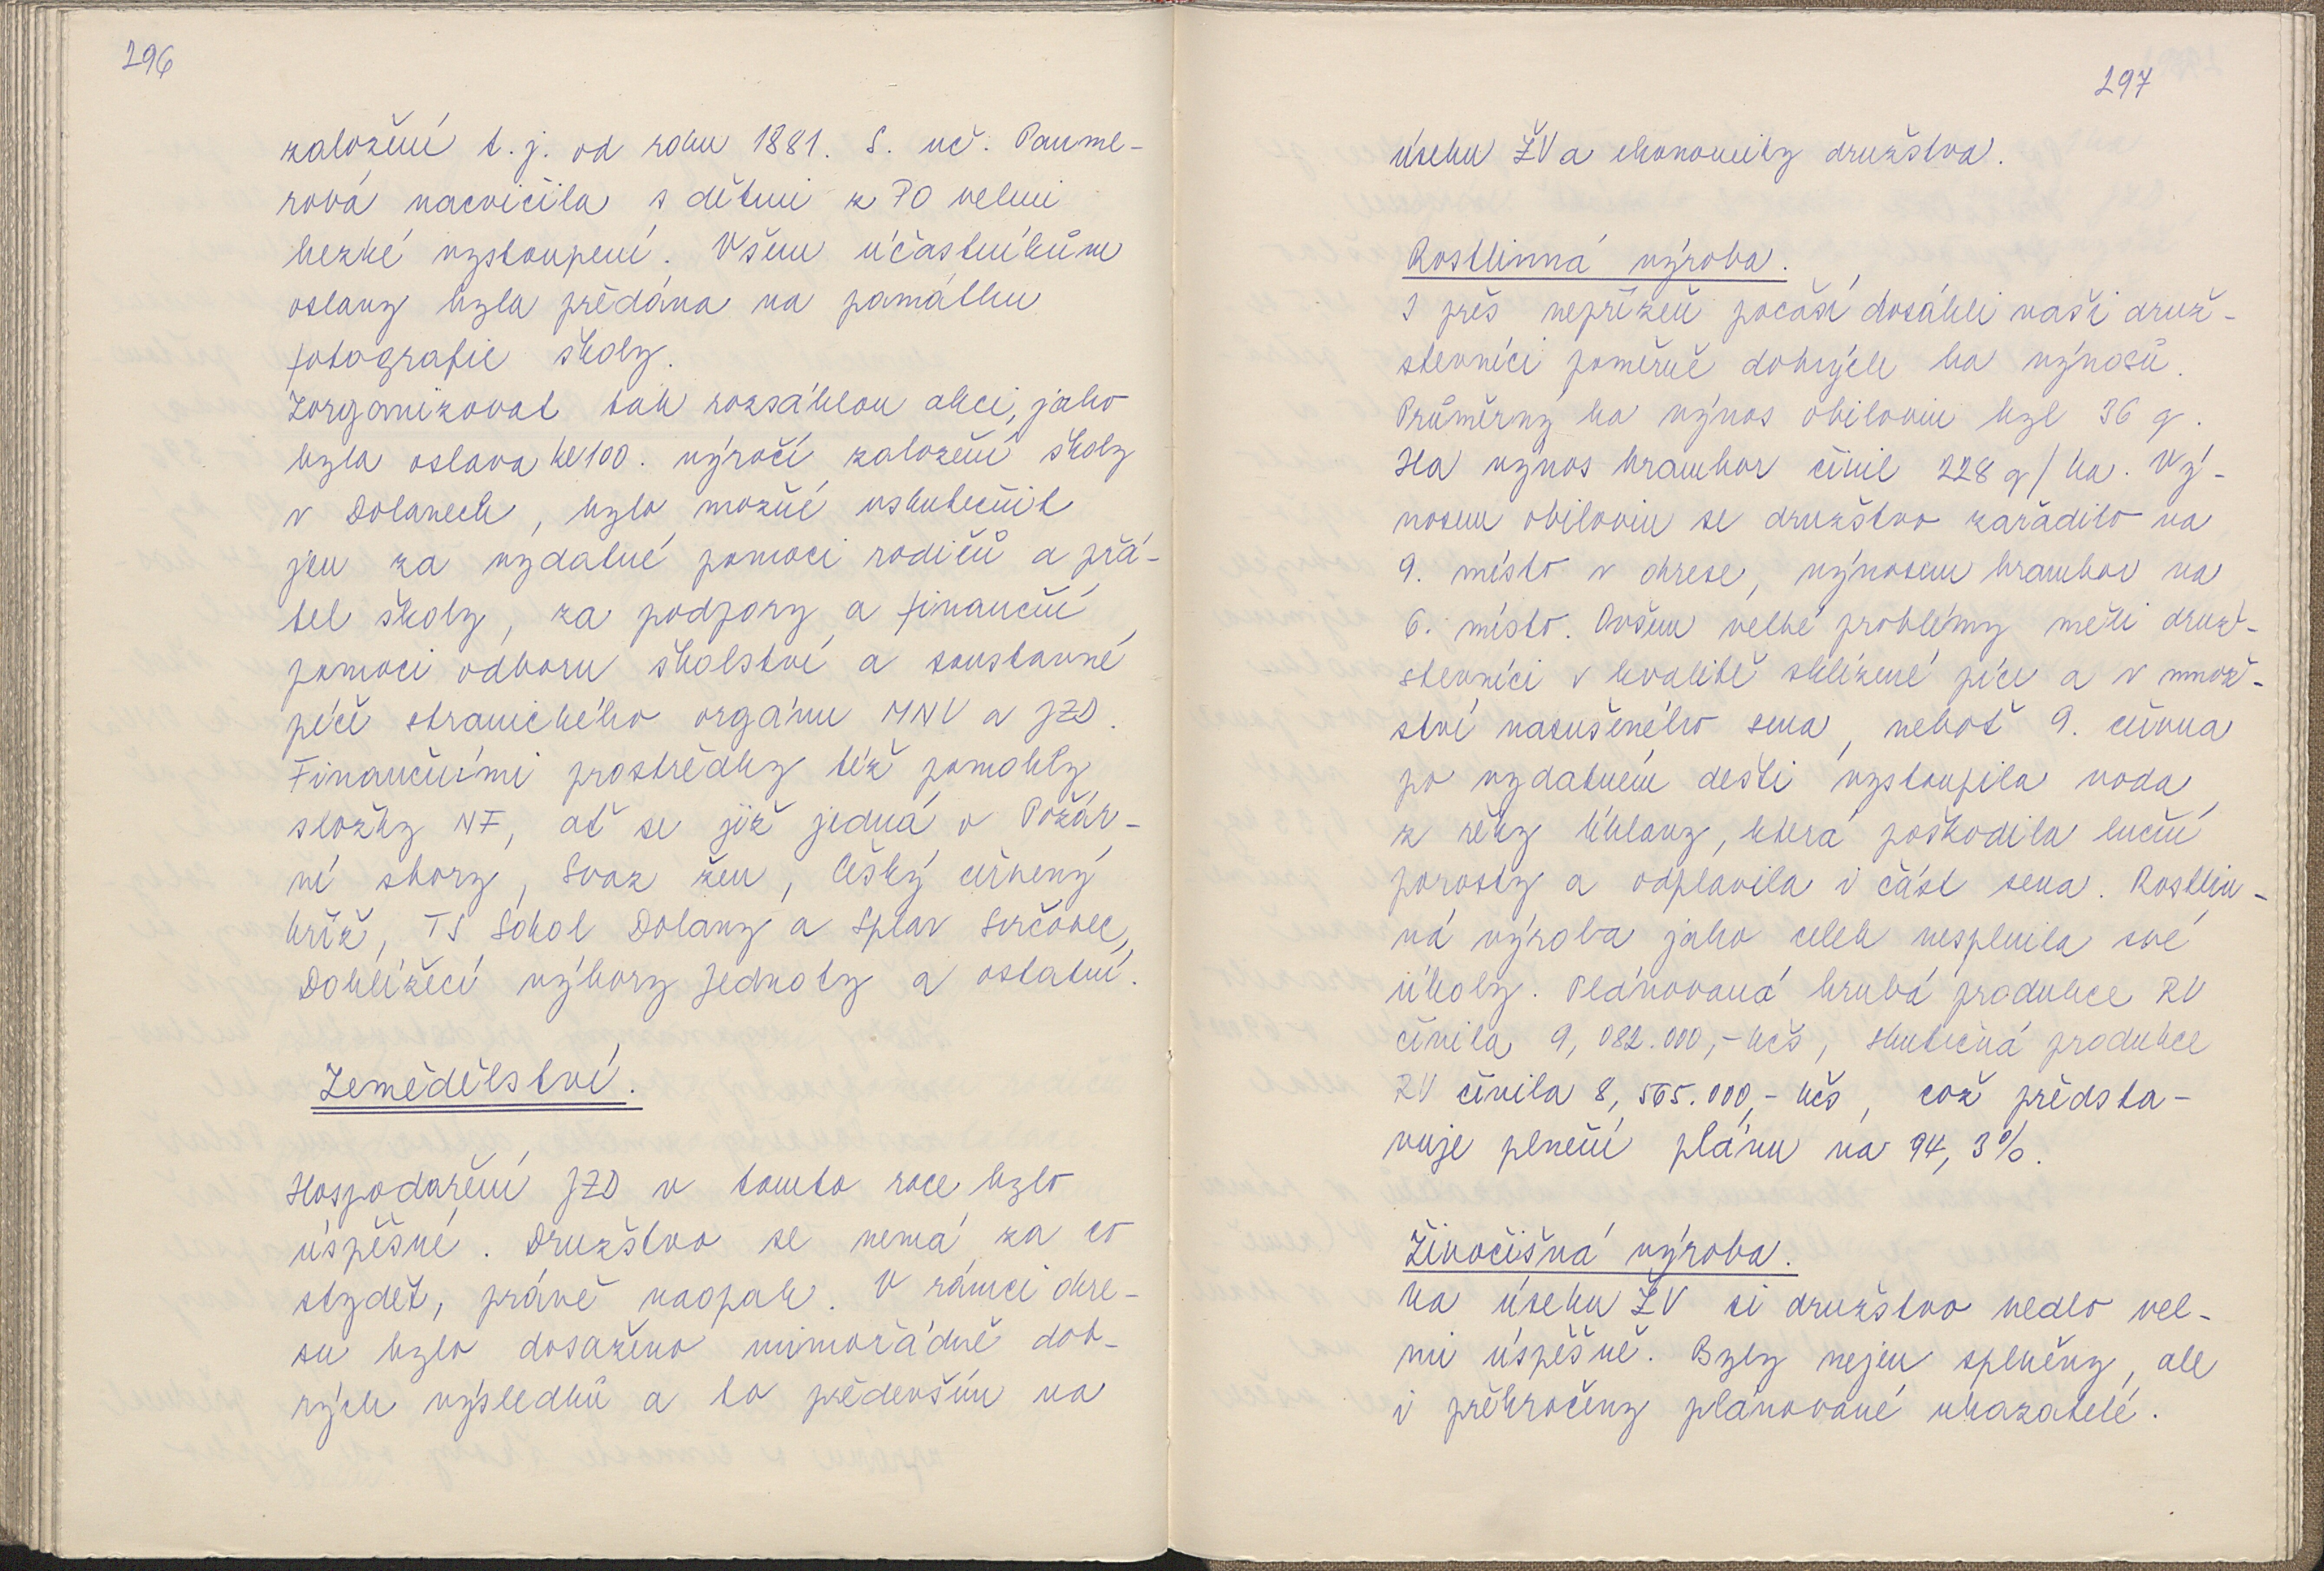 296
založení t. j. od roku 1881. S. uč. Paume-
rová nacvičila s dětmi z PO velmi
hezké vystoupení. Všem účastníkům
oslavy byla předána na památku
fotografie školy.
Zorganizovat tak rozsáhlou akci, jako
byla oslava ke 100. výročí založení školy
v Dolanech, bylo možné uskutečnit
jen za vydatné pomoci rodičů a přá-
tel školy, za podpory a finanční
pomoci odboru školství a soustavné
péči stranického orgánu MNV a JZD.
Finančními prostředky též pomohly
složky NF, ať se již jedná o Požár-
ní sbory, Svaz žen, Český červený
kříž, TJ Sokol Dolany a Splav Svrčovec,
Dohlížecí výbory Jednoty a ostatní.
Zemědělství.
Hospodaření JZD v tomto roce bylo
úspěšné. Družstvo se nemá za co
stydět, právě naopak. V rámci okre-
su bylo dosaženo mimořádně dob-
rých výsledků a to především na
297
úseku ŽV a ekonomiky družstva.
Rostlinná výroba.
I přes nepřízeň počasí dosáhli naši druž-
stevníci poměrně dobrých ha výnosů.
Průměrný ha výnos obilovin byl 36 q.
Ha výnos brambor činil 228 q/ha. Vý-
nosem obilovin se družstvo zařadilo na
9. místo v okrese, výnosem brambor na
6. místo. Ovšem velké problémy měli druž-
stevníci v kvalitě sklízené píce a v množ-
ství nasušeného sena, neboť 9. června
po vydatném dešti vystoupila voda
z řeky Úhlavy, která poškodila luční
porosty a odplavila i část sena. Rostlin-
ná výroba jako celek nesplnila své
úkoly. Plánovaná hrubá produkce RV
činila 9, 082.000,- Kčs, skutečná produkce
RV činila 8, 565.000,- Kčs, což předsta-
vuje plnění plánu na 94, 3%.
Živočišná výroba.
Na úseku ŽV si družstvo vedlo vel-
mi úspěšně. Byly nejen splněny, ale
i překročeny plánované ukazatelé.